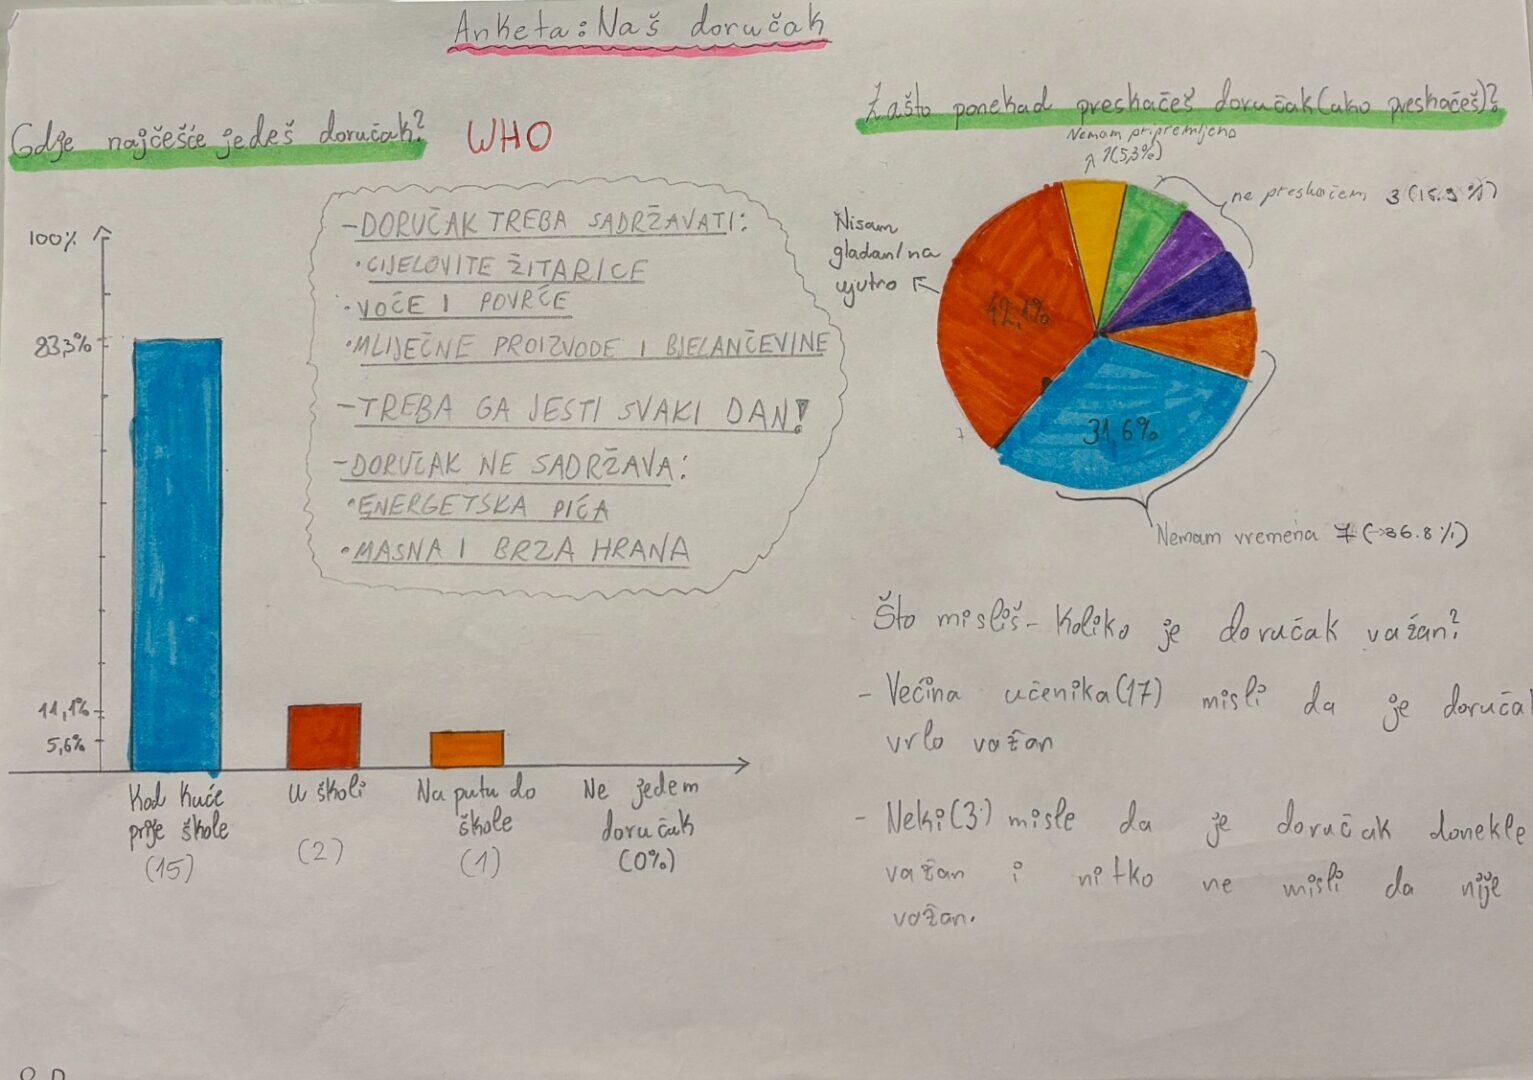 Anketa: Naš doručak
Gdje najčešće jedeš doručak?
WHO
100%
83,3%
11,1%
5,6%
Kod kuće
prije škole
(15)
U školi
(2)
Na putu do
škole
(1)
Ne jedem
doručak
(0%)
-DORUČAK TREBA SADRŽAVATI:
•CIJELOVITE ŽITARICE
•VOĆE I POVRĆE
•MLIJEČNE PROIZVODE I BJELANČEVINE
-TREBA GA JESTI SVAKI DAN!
-DORUČAK NE SADRŽAVA:
•ENERGETSKA PIĆA
•MASNA I BRZA HRANA
Zašto ponekad preskačeš doručak(ako preskačeš)?
Nemam pripremljeno
1(5,3%)
ne preskačem 3 (15.9%)
Nisam
gladan/na
ujutro
42,1%
31,6%
Nemam vremena 7 (→36.8%)
Što misliš- Koliko je doručak važan?
- Većina učenika(17) misli da je doruča
vrlo važan
- Neki(3) misle da je doručak donekle
važan i nitko ne misli da nije
važan.